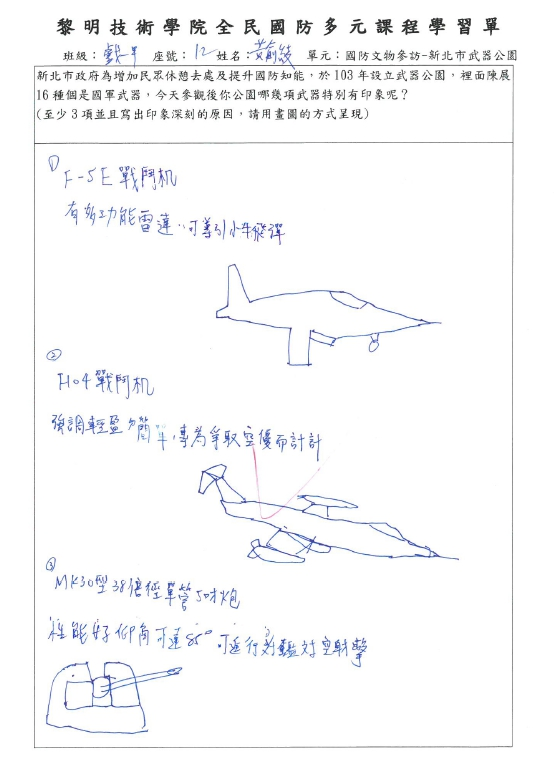 黎明技術學院全民國防多元課程學習單
班級：戲一甲 座號：12 姓名：黃 單元：國防文物參訪-新北市武器公園
新北市政府為增加民眾休憩去處及提升國防知能，於 103 年設立武器公園，裡面陳展
16 種個是國軍武器，今天參觀後你公園哪幾項武器特別有印象呢？
(至少 3 項並且寫出印象深刻的原因，請用畫圖的方式呈現)
①
F-5E戰鬥机
有多功能雷達，可導引小牛飛彈
②
F104戰鬥机
強調輕盈簡單，專為爭取空優而計計
③
MK30型38倍徑單管5吋炮
性能好仰角可達85° 可進行對艦對空射擊